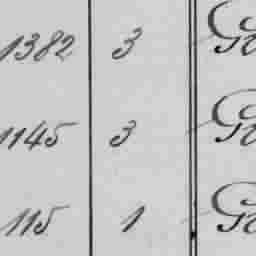 1382 3 Go
1145 3 Go
115 1 Go